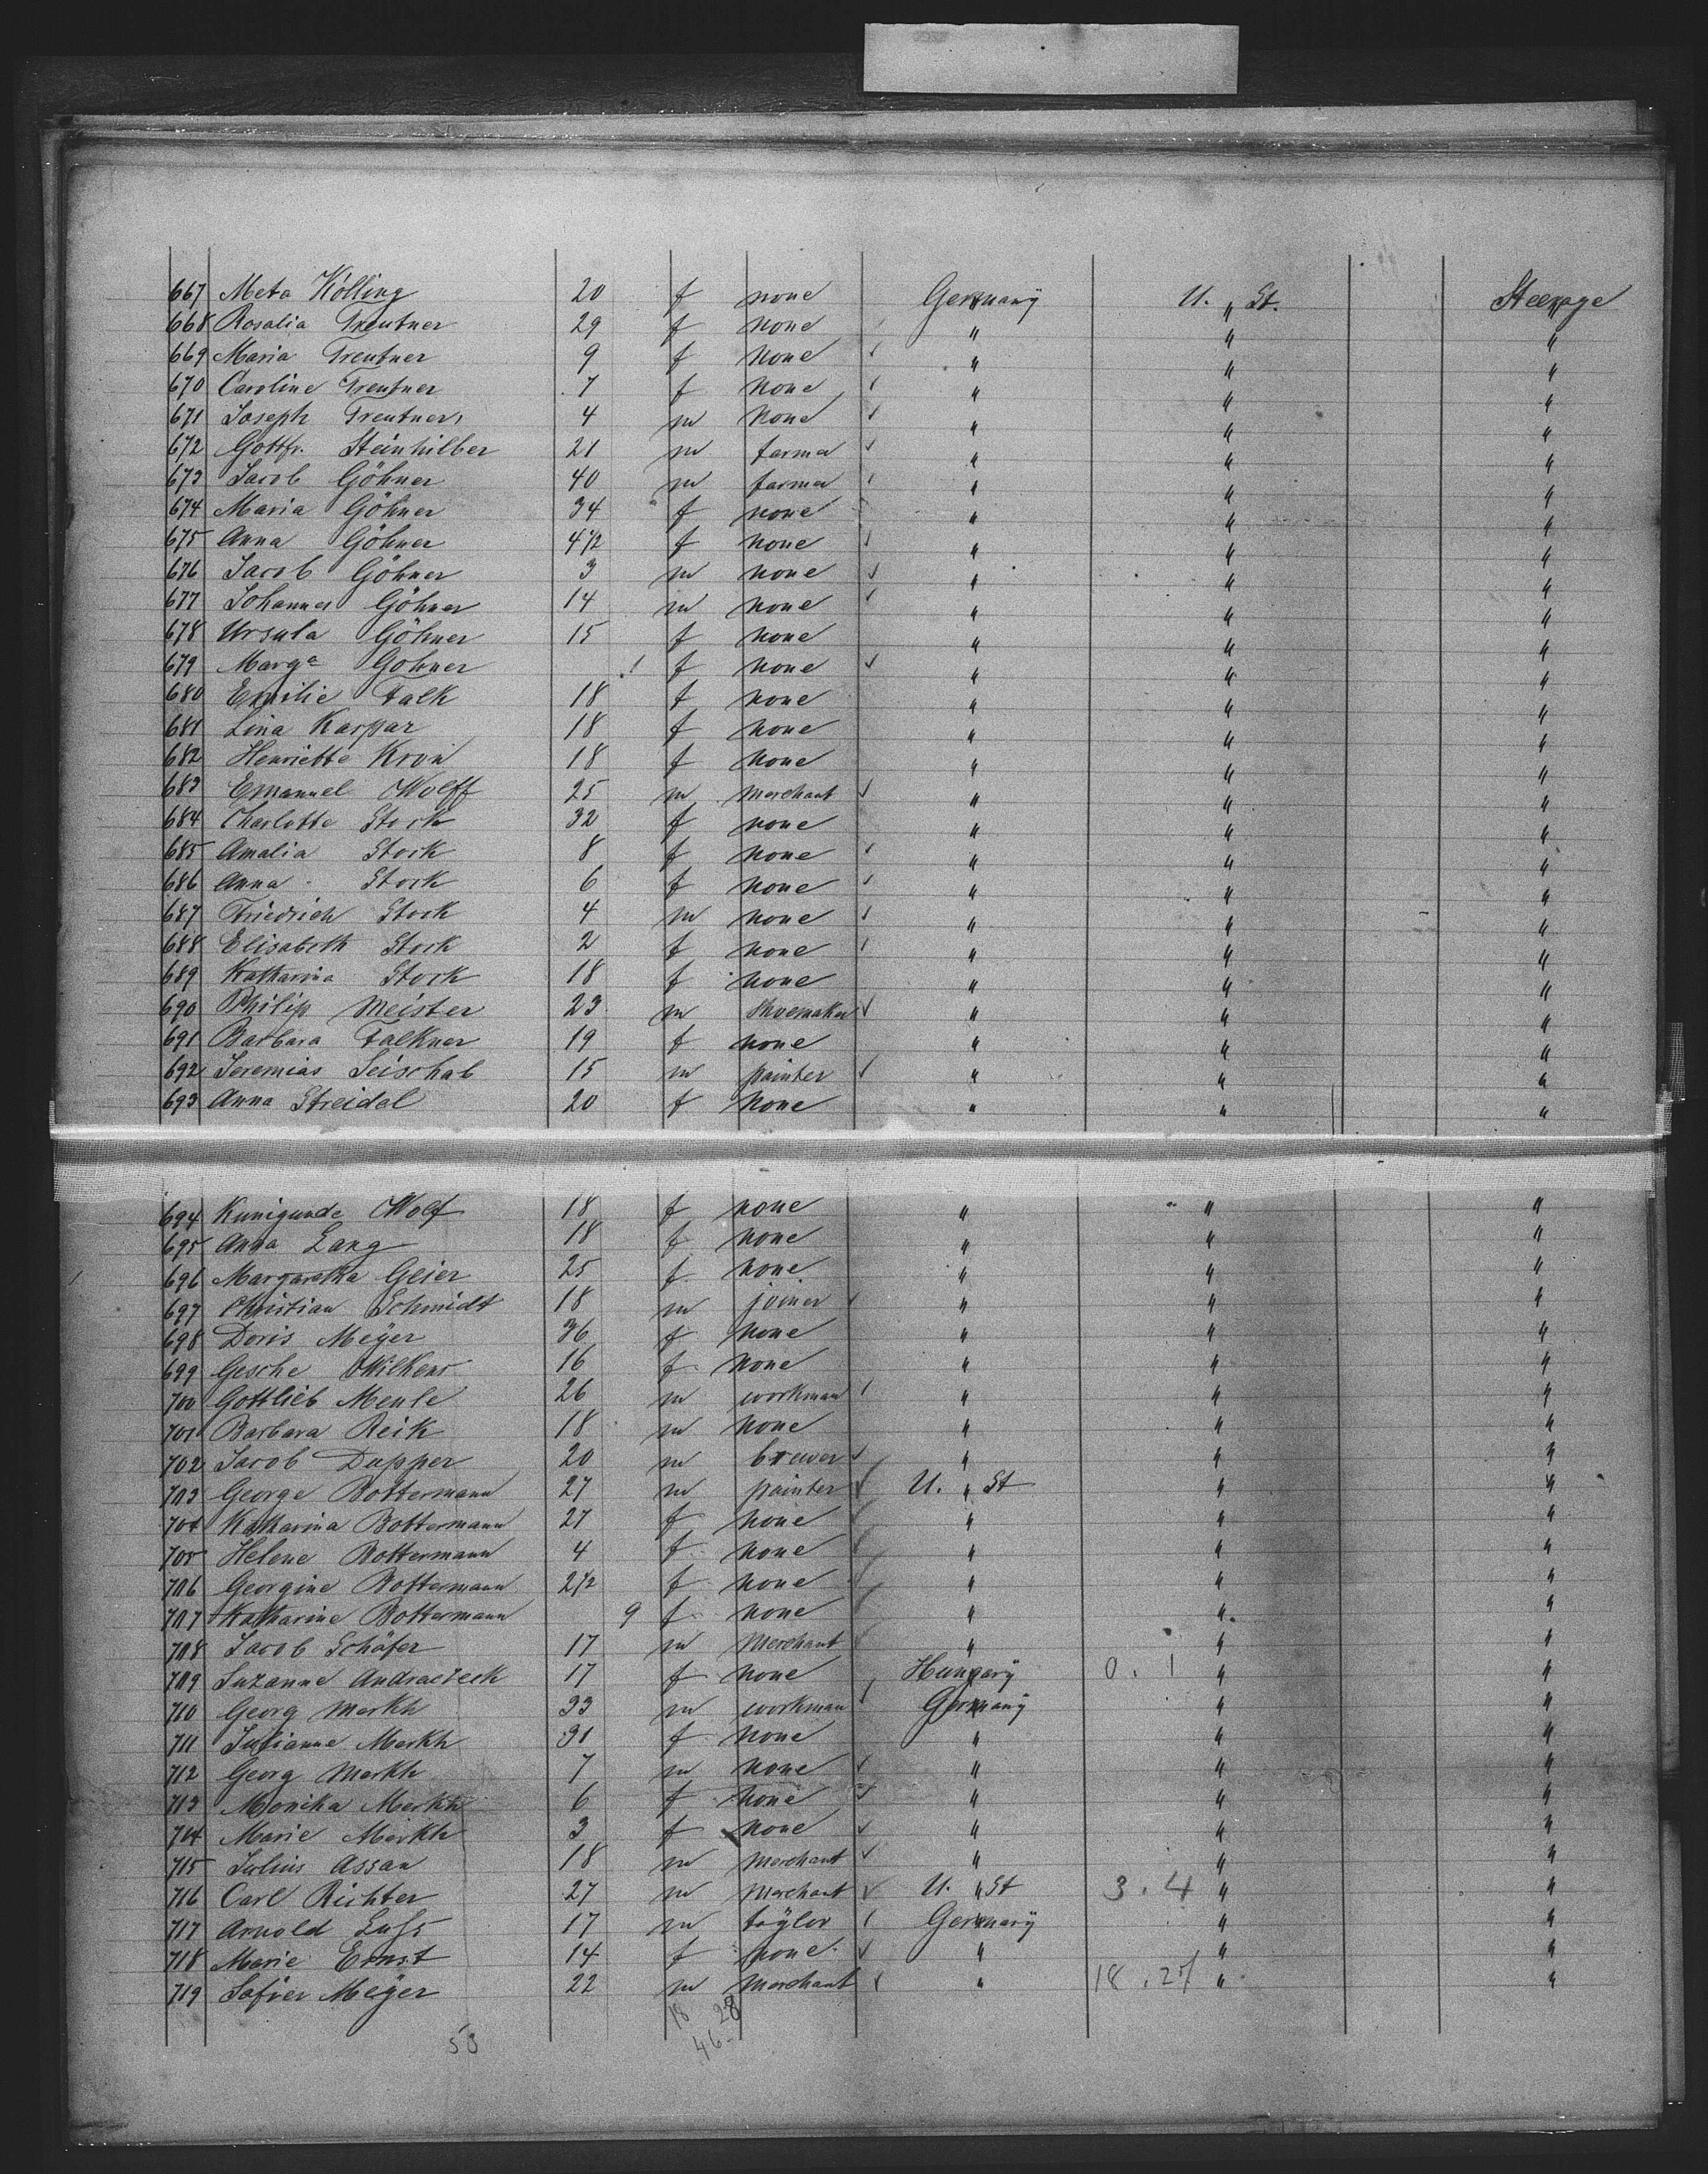 667 Meta Kölling 20 f none Germany U. St. Steerage
668 Rosalia Treutner 29 f none " " "
669 Maria Treutner 9 f none " " "
670 Caroline Treutner 7 f none " " "
671 Joseph Treutner 4 m none " " "
672 Gottfr. Steinhilber 21 m farmer " " "
673 Jacob Göhner 40 m farmer " " "
674 Maria Göhner 34 f none " " "
675 Anna Göhner 4 1/2 f none " " "
676 Jacob Göhner 3 m none " " "
677 Johannes Göhner 14 m none " " "
678 Ursula Göhner 15 f none " " "
679 Marga Göhner 1 f none " " "
680 Emilie Falk 18 f none " " "
681 Lina Kaspar 18 f none " " "
682 Henriette Kron 18 f none " " "
683 Emanuel Wolff 25 m merchant " " "
684 Charlotte Stork 32 f none " " "
685 Amalia Stork 8 f none " " "
686 Anna Stork 6 f none " " "
687 Friedrich Stork 4 m none " " "
688 Elisabeth Stork 2 f none " " "
689 Katharina Stork 18 f none " " "
690 Philip Meister 23 m shoemaker " " "
691 Barbara Falkner 19 f none " " "
692 Jeremias Seischab 15 m painter " " "
693 Anna Streidel 20 f none " " "
694 Kunigunde Wolf 18 f none " " "
695 Anna Lang 18 f none " " "
696 Margaretha Geier 25 f none " " "
697 Christian Schmidt 18 m joiner " " "
698 Doris Meÿer 36 f none " " "
699 Gesche Wilkens 16 f none " " "
700 Gottlieb Menle 26 m workman " " "
701 Barbara Reik 18 m none " " "
702 Jacob Dupper 20 m brewer " " "
703 George Bottermann 27 m painter U. St " "
704 Katharina Bottermann 27 f none " " "
705 Helene Bottermann 4 f none " " "
706 Georgine Bottermann 2 1/2 f none " " "
707 Katharine Bottermann 9 f none " " "
708 Jacob Schäfer 17 m merchant " " "
709 Suzanne 17 f none Hungarÿ 0. 1 " "
710 Georg Merkh 33 m workman Germanÿ " "
711 Julianne Merkh 31 f none " " "
712 Georg Merkh 7 m none " " "
713 Monika Merkh 6 f none " " "
714 Marie Merkh 3 f none " " "
715 Julius Assan 18 m merchant " " "
716 Carl Richter 27 m merchant U. St 3. 4 " "
717 Arnold 17 m taÿlor Germanÿ " "
718 Marie Ernst 14 f none " " "
719 Meÿer 22 m merchant " 18. 27 " "
18 28
46
53